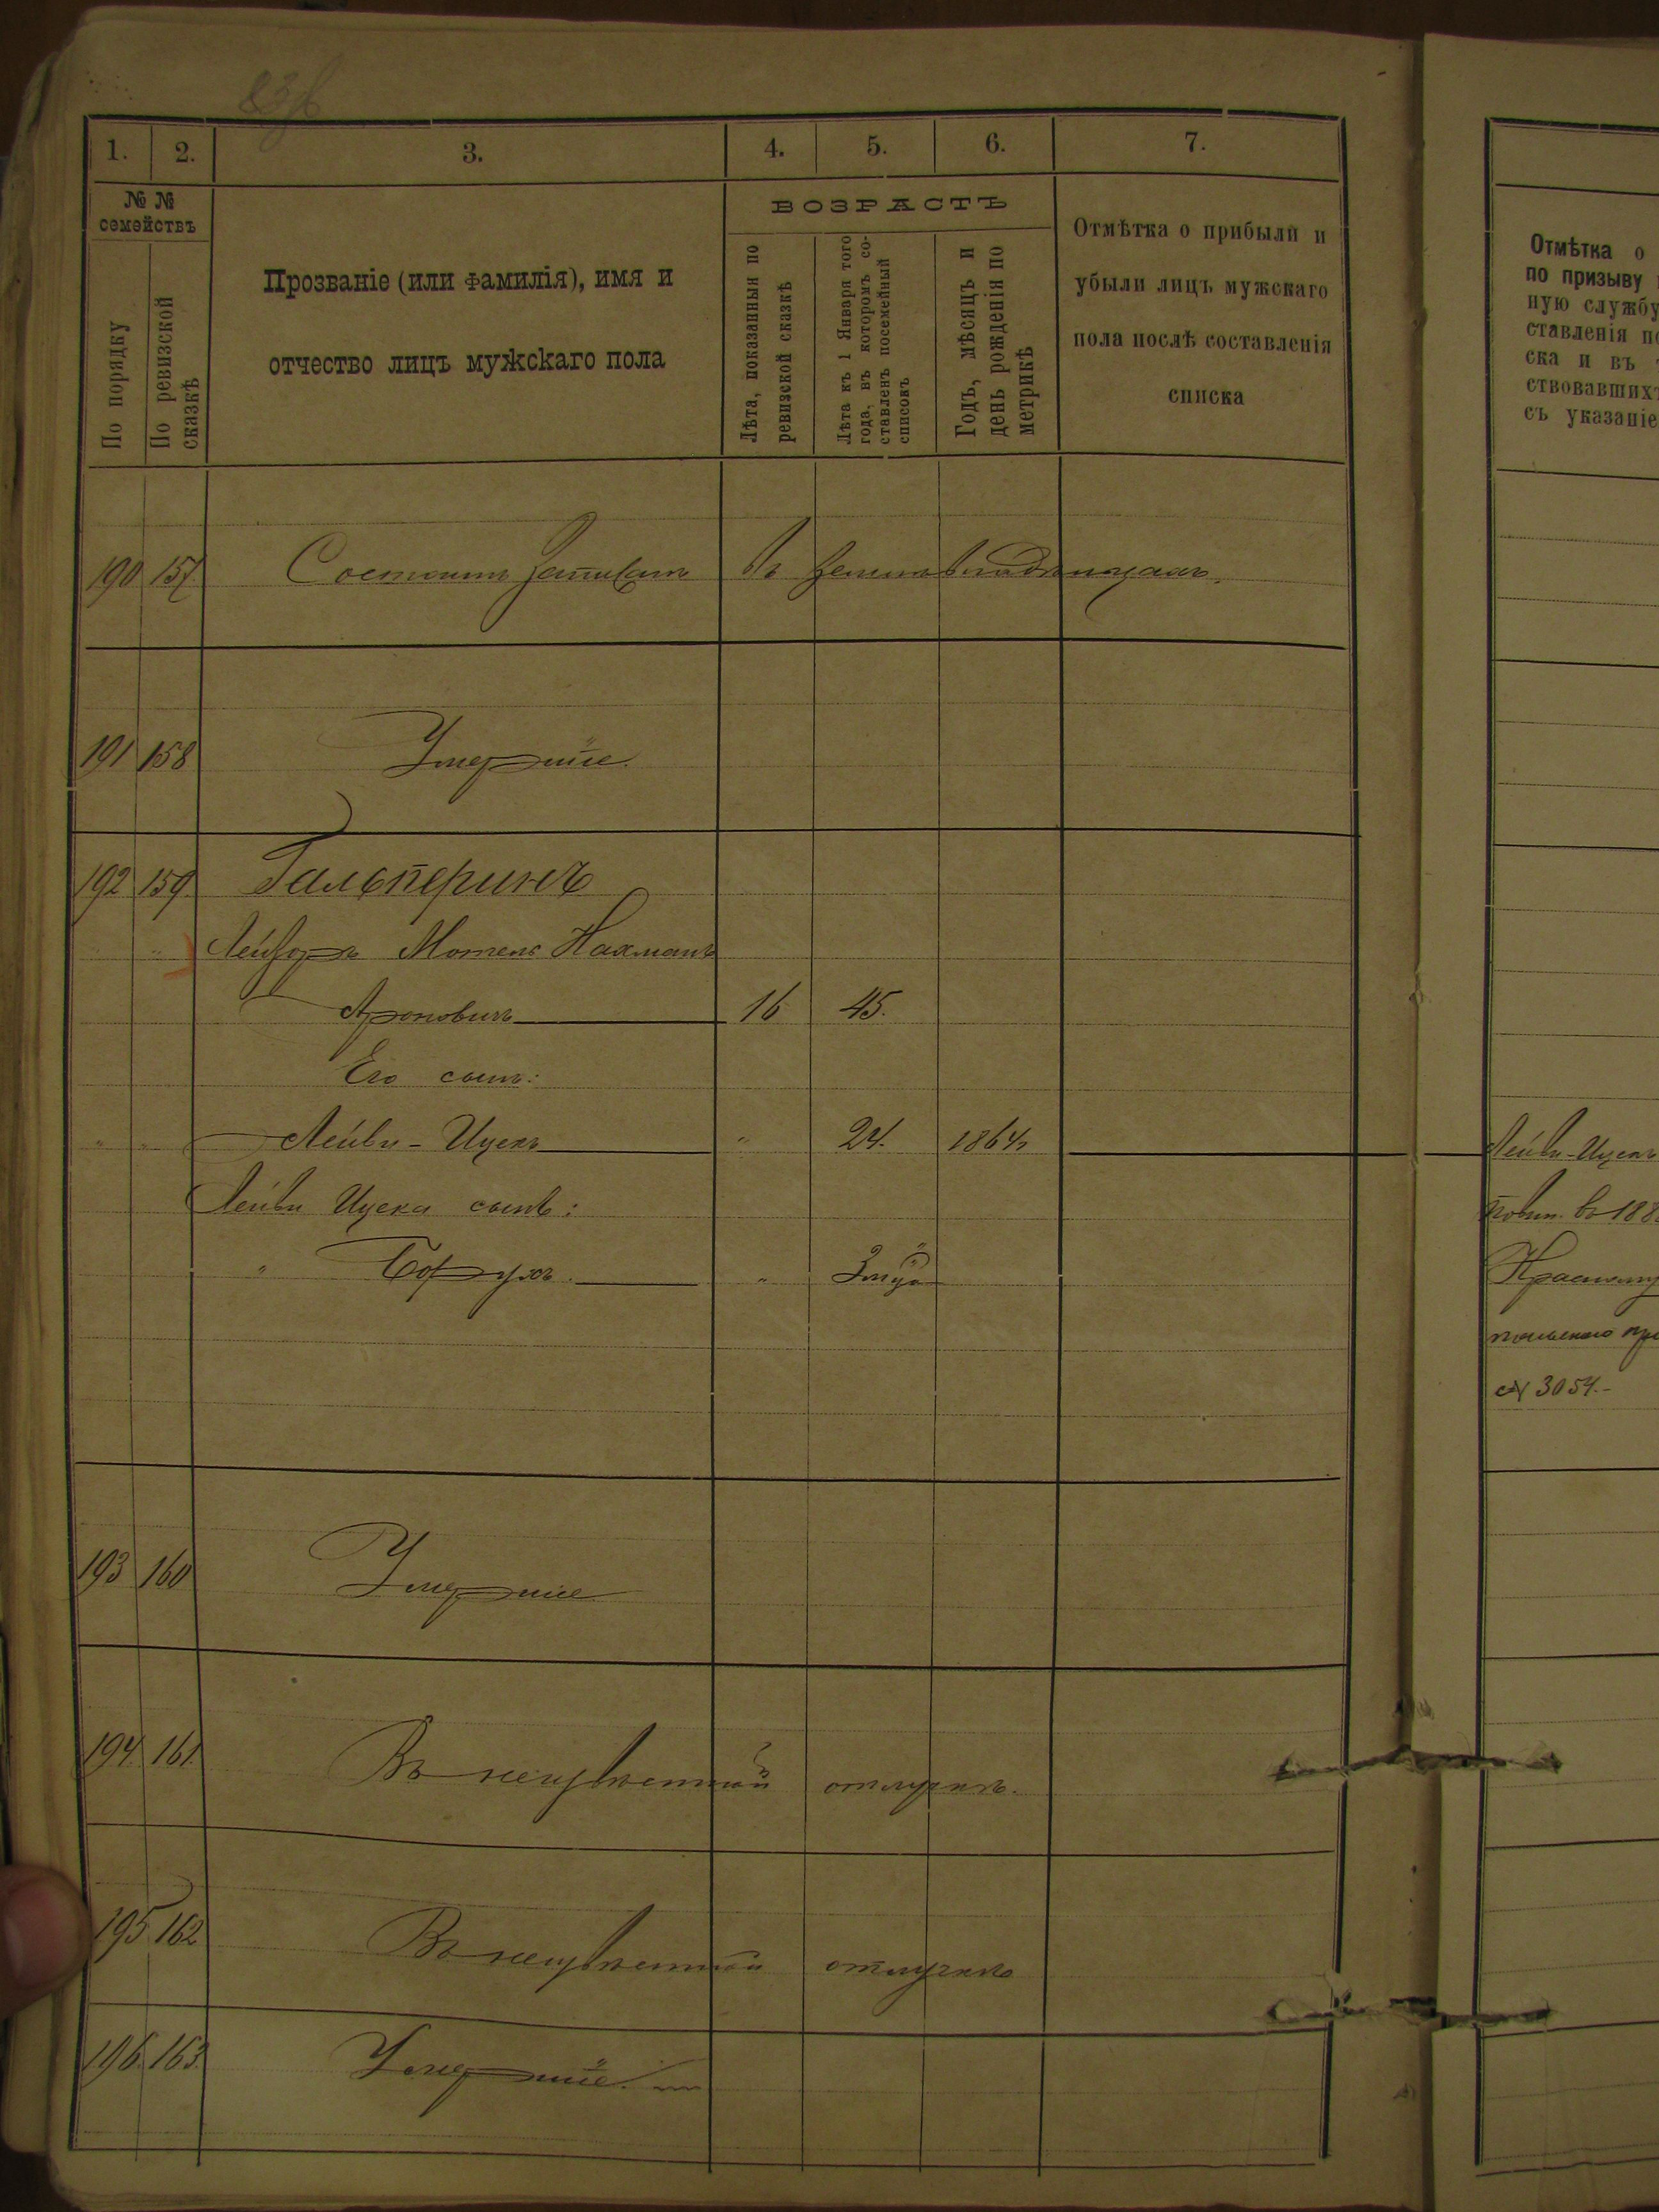 1. 2. 3. 4. 5. 6. 7.
№ №
семействъ
По порядку
По ревизской
сказкѣ
Прозваніе (или фамилія), имя и
отчество лицъ мужскаго пола
ВОЗРАСТЪ
Лѣта, показанныя по
ревизской сказкѣ
Лѣта къ 1 Января того
года, въ которомъ со-
ставленъ посемейный
списокъ
Годъ, мѣсяцъ и
день рожденія по
метрикѣ
Отмѣтка о прибыли и
убыли лицъ мужскаго
пола послѣ составленія
списка
190 157 Состоитъ записан въ земледѣльцахъ.
191 158 Умершіе.
192 159. Гальперинъ
" Лейзоръ Мотель Нахманъ
Ароновичъ 16 45.
Его сынъ:
" " Лейви-Ицекъ " 24. 1864
Лейви Ицека сынъ:
" Борухъ. "
193 160 Умершіе
194. 161. Въ неизвѣстной отлучкѣ.
195 162 Въ неизвѣстной отлучкѣ
196. 163. Умершіе.
Отмѣтка о
по призыву
ную службу
ставленія по
ска и въ
ствовавшихъ
съ указаніе
Лейви-Ицекъ
№ 3054.-